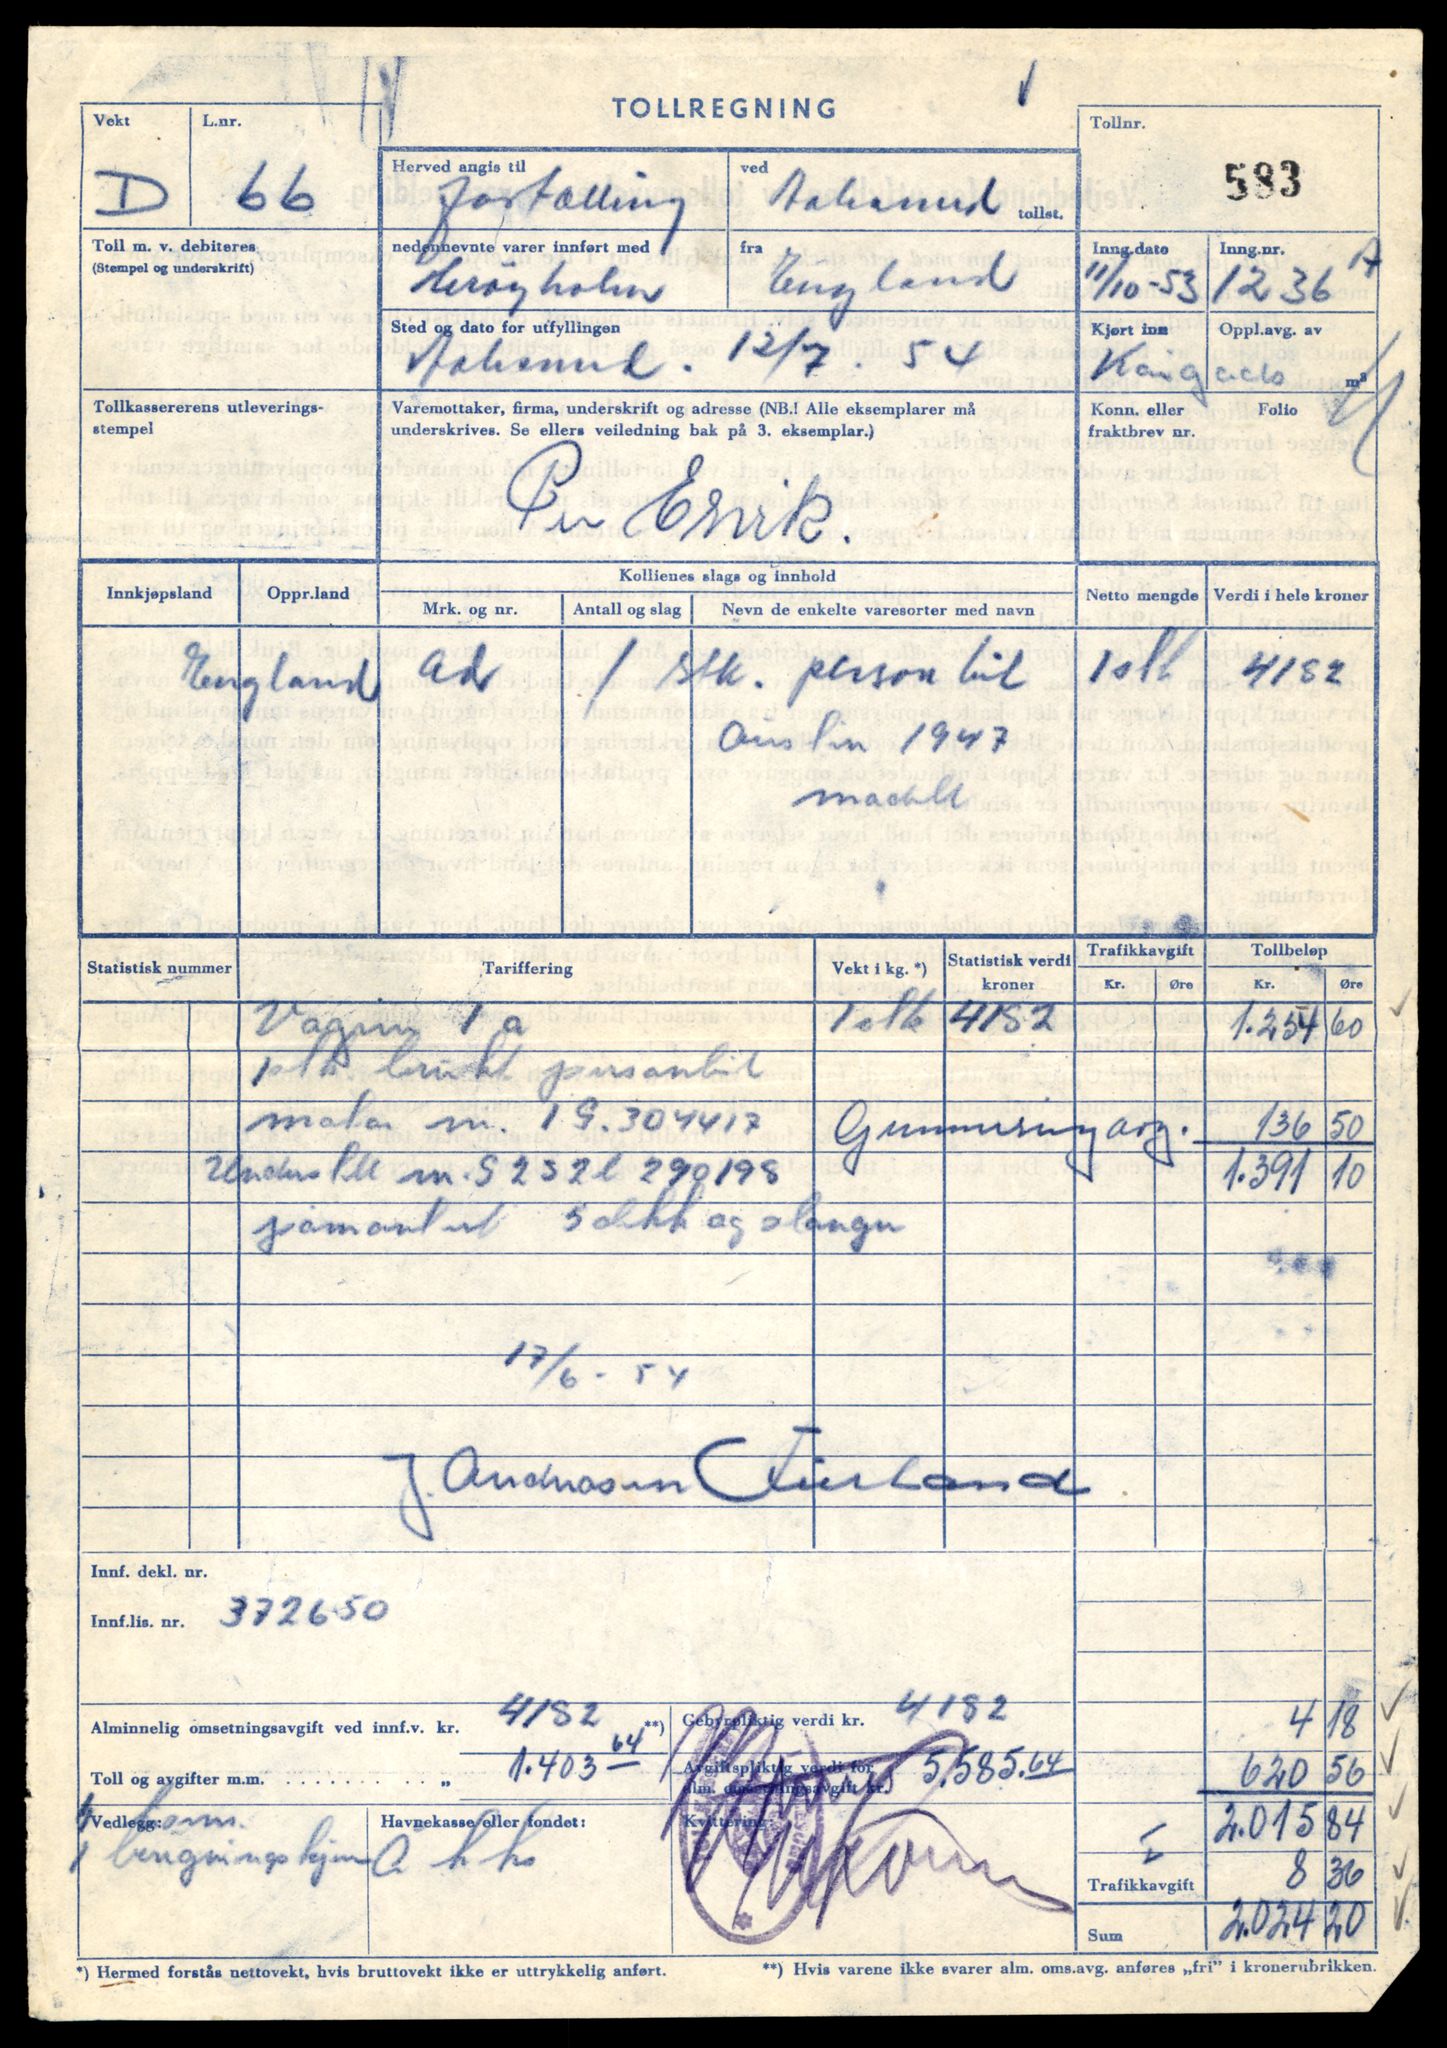 TOLLREGNING
Vekt
L.nr.
D 66
Herved angis til
Fortolling
ved
Aalesund tollst.
Tollnr.
583
Toll m. v. debiteres
(Stempel og underskrift)
nedennevnte varer innført med
Herøyholm
fra
England
Inng.date
11/10-53
Inng.nr.
1236 A
Sted og dato for utfyllingen
Aalesund. 12/7. 54
Kjørt inn
Oppl.avg. av
m³
Tollkassererens utleverings-
stempel
Varemottaker, firma, underskrift og adresse (NB.! Alle eksemplarer må
underskrives. Se ellers veiledning bak på 3. eksemplar.)
Per Ervik.
Konn. eller
fraktbrev nr.
Folio
Innkjøpsland
Oppr.land
Kollienes slags og innhold
Mrk. og nr.
Antall og slag
Nevn de enkelte varesorter med navn
Netto mengde
Verdi i hele kroner
England ad 1 stk. personbil 1 stk 4182
Austin 1947
modell
Statistisk nummer
Tariffering
Vekt i kg. *)
Statistisk verdi
kroner
Trafikkavgift
Kr.
Øre
Tollbeløp
Kr.
Øre
Vogner 1 a 1 stk 4182 1.254 60
1 stk brukt personbil
motor nr. 1 G. 304417 Gummiringavg. 136 50
Understell nr. G S 2 S 2 L 290198 1.391 10
påmontert 5 dekk og slanger
17/6 - 54
J. Andreasen
Innf. dekl. nr.
Innf.lis. nr. 372650
Alminnelig omsetningsavgift ved innf.v. kr. 4182 **)
Gebyrpliktig verdi kr. 4182
4 18
Toll og avgifter m.m. . . . . . . . . . . „ 1.403 64
Avgiftspliktig verdi for
alm. omsetningsavgift kr. 5.585.64
620 56
Vedlegg:
Havnekasse eller fondet:
Kvittering:
2.015 84
Trafikkavgift 8 36
Sum 2.024 20
*) Hermed forstås nettovekt, hvis bruttovekt ikke er uttrykkelig anført.
**) Hvis varene ikke svarer alm. oms.avg. anføres „fri” i kronerubrikken.